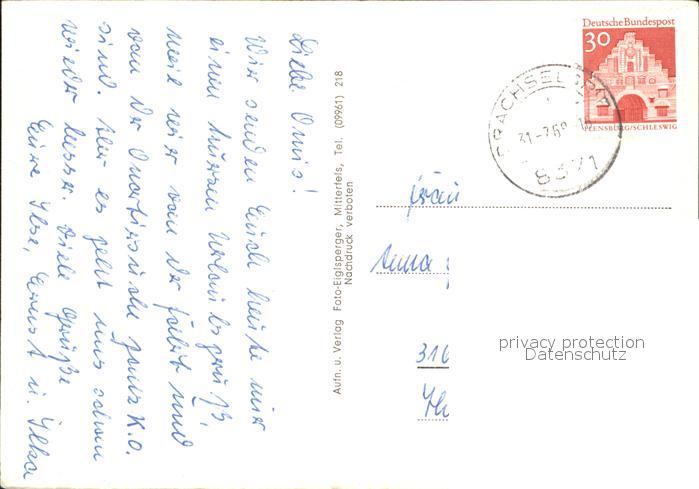 Liebe Omis!
Wir senden Euch heute nur
einen kurzen Urlaubsgruß,
weil wir von der Fahrt und
von der Quartiersuche ganz K.O.
sind. Aber es geht uns schon
wieder besser. Viele Grüße
Eure Ilse, Ernst u. Ilka
Aufn. u. Verlag Foto-Eiglsperger, Mitterfels, Tel. (09961) 218
Nachdruck verboten
Deutsche Bundespost
30
FLENSBURG/SCHLESWIG
8371
Frau
Anna
316
privacy protection
Datenschutz